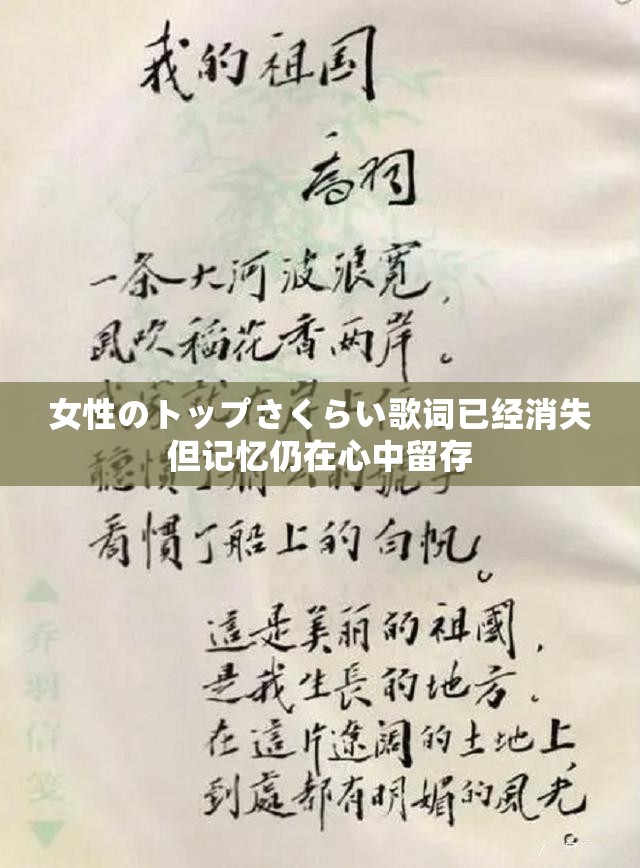 我的祖国
喬羽
一条大河波浪寬，
風吹稻花香两岸。
女性のトップさくらい歌词已经消失
但记忆仍在心中留存
聽慣了 的號子
看慣了船上的白帆。
這是美丽的祖國，
是我生長的地方。
在這片遼阔的土地上，
到處都有明媚的風光。
乔羽信笺